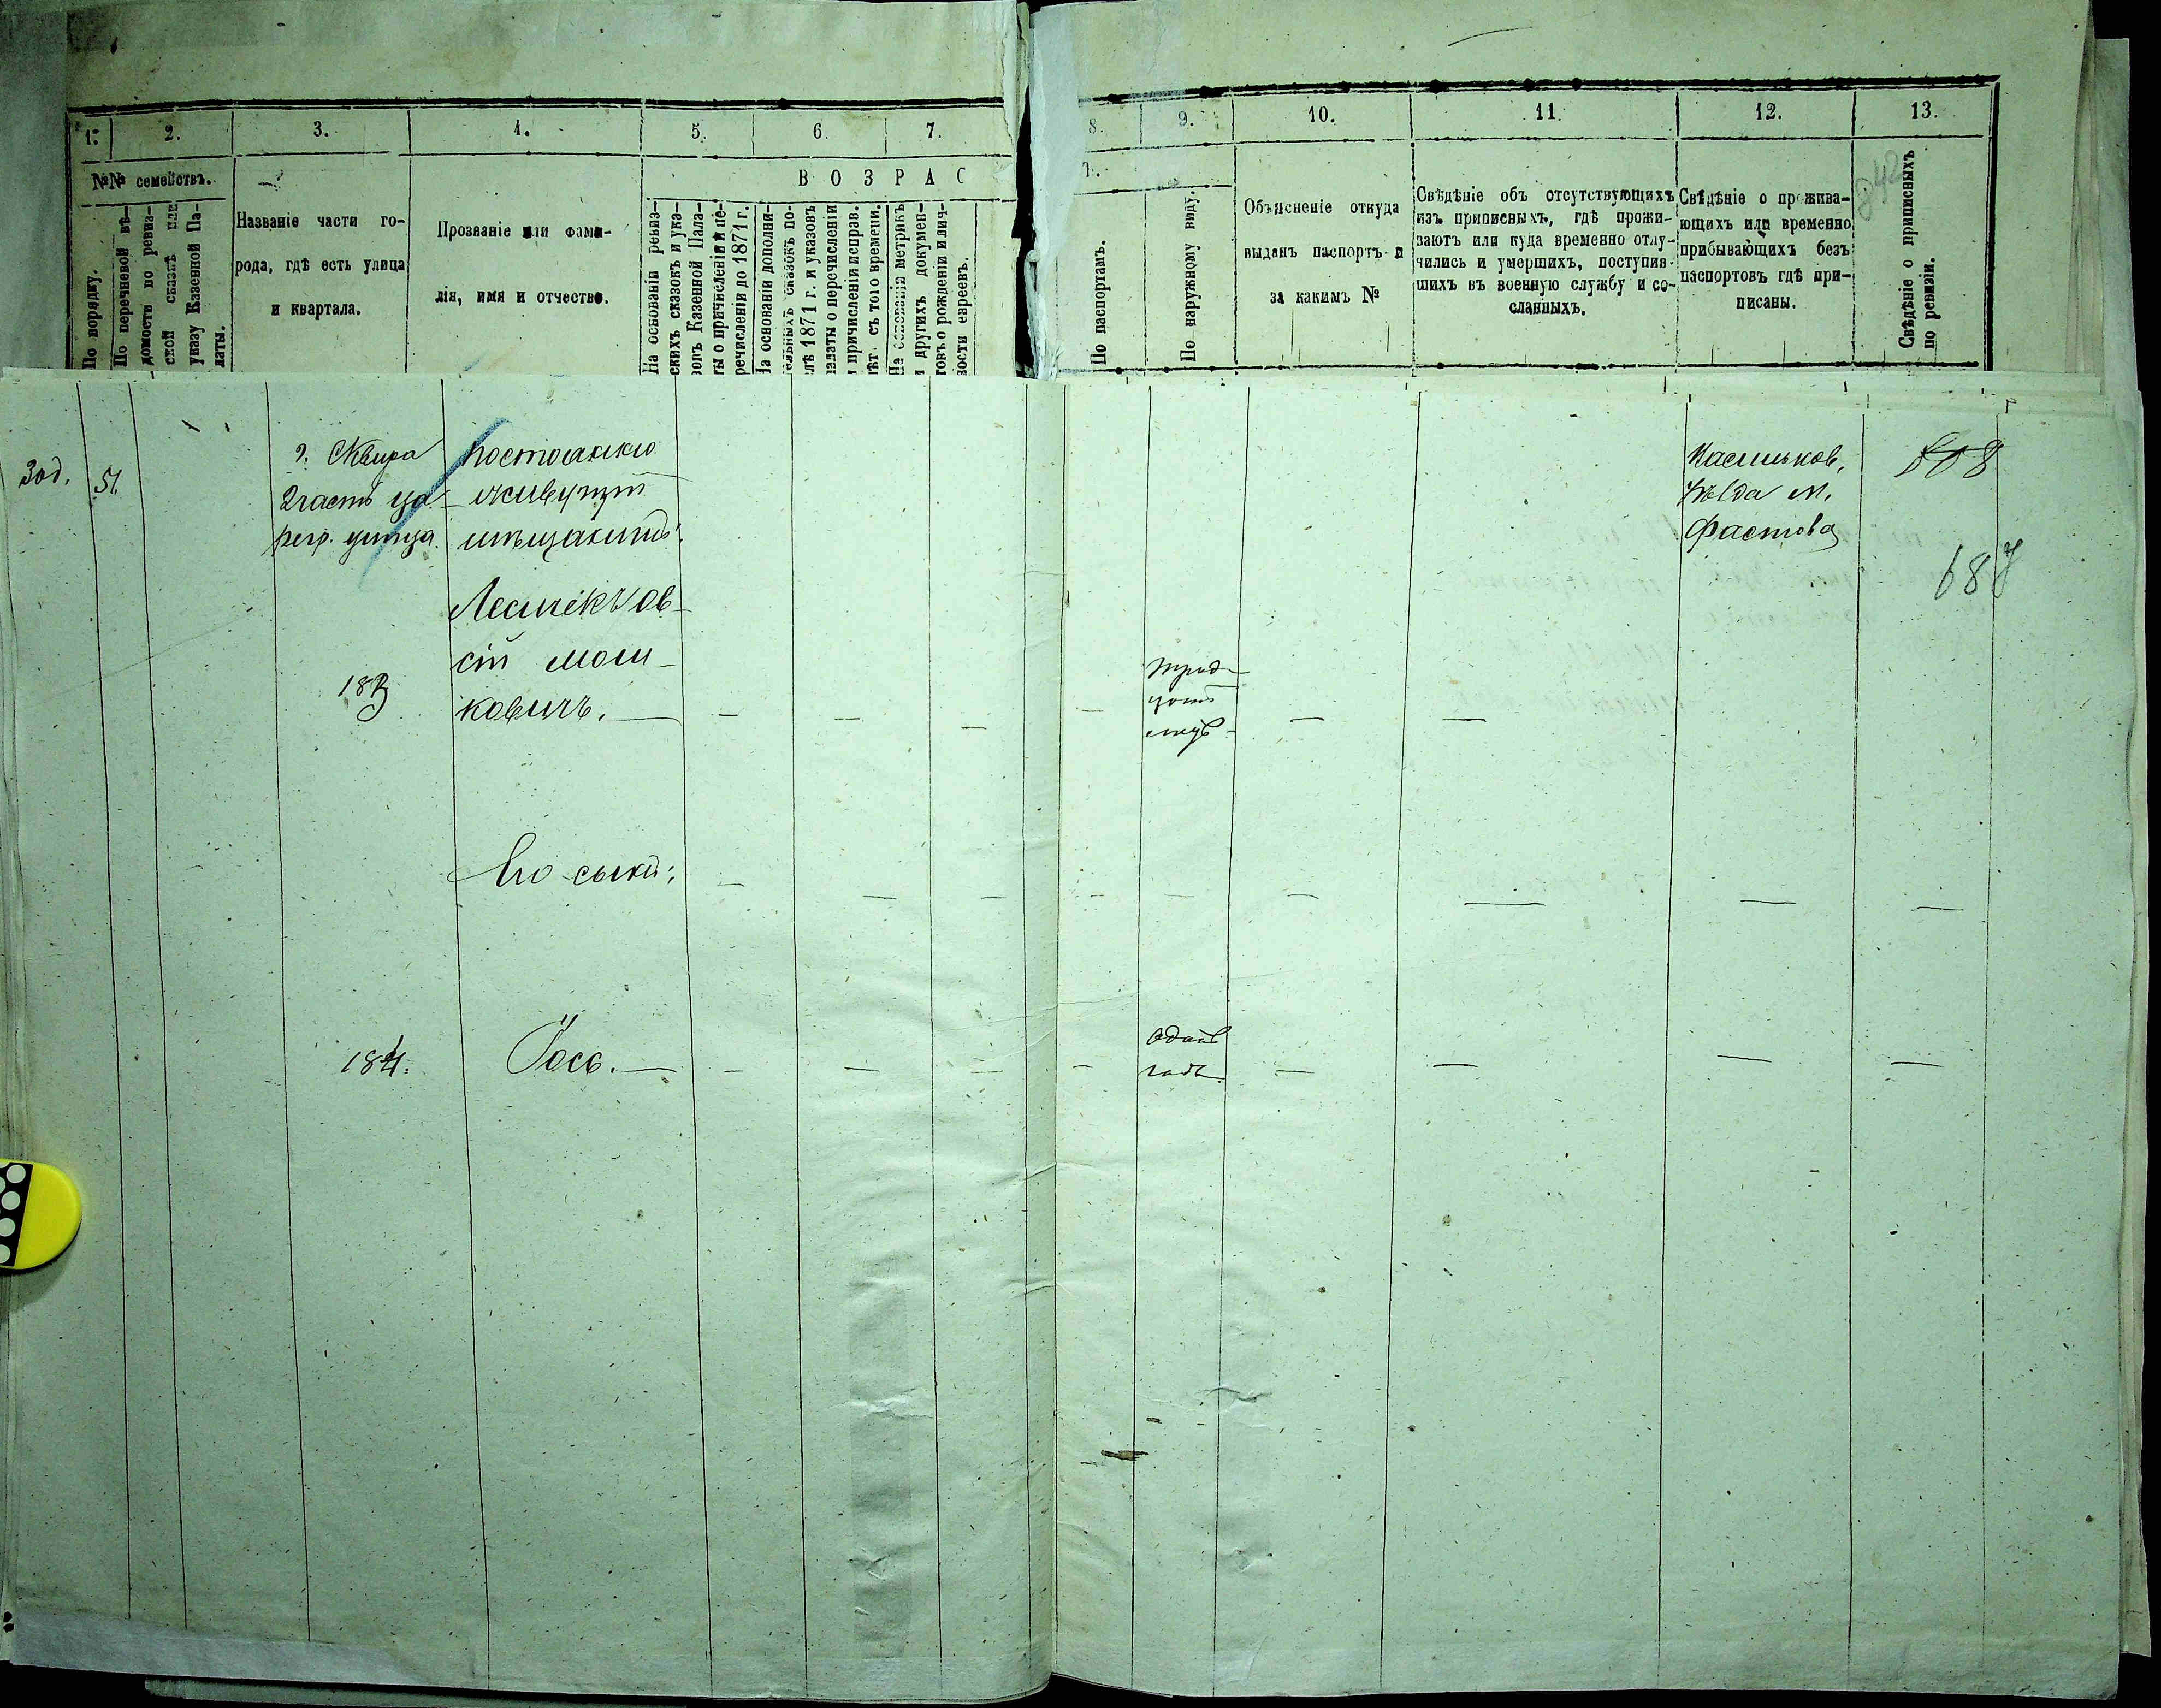 1. 2. 3. 4. 5. 6. 7. 8. 9. 10. 11. 12. 13.
№№ семействъ.
В О З Р А С
По порядку.
По перечневой вѣ-
домость по ревиз-
ской сказкѣ или
указу Казенной Па-
латы.
Названіе части го-
рода, гдѣ есть улица
и квартала.
Прозваніе или фами-
лія, имя и отчество.
На основаніи ревиз-
скихъ сказокъ и ука-
зовъ Казенной Пала-
ты о причисленіи и пе-
речисленіи до 1871 г.
На основаніи дополни-
тельныхъ сказокъ по-
слѣ 1871 г. и указовъ
палаты о перечисленіи
и причисленіи исправ.
лѣт. съ того времени.
На основаніи метрикъ
и другихъ докумен-
товъ о рожденіи и лич-
ности евреевъ.
По паспортамъ.
По наружному виду.
Объясненіе откуда
выданъ паспортъ и
за какимъ №
Свѣдѣніе объ отсутствующихъ
изъ приписныхъ, гдѣ прожи-
ваютъ или куда временно отлу-
чились и умершихъ, поступив-
шихъ въ военную службу и со-
сланныхъ.
Свѣдѣніе о прожива-
ющихъ или временно
прибывающихъ безъ
паспортовъ гдѣ при-
писаны.
Свѣдѣніе о приписныхъ
по ревизіи.
842
51.
г. Сквира
2 часть
улица
Постоянно
живущій
мѣщанинъ
183
Мош-
ковичъ.
трид-
цать
Васильков.
уѣзда м.
Фастова
687
Его сынъ:
184.
Іось.
Одинъ
годъ